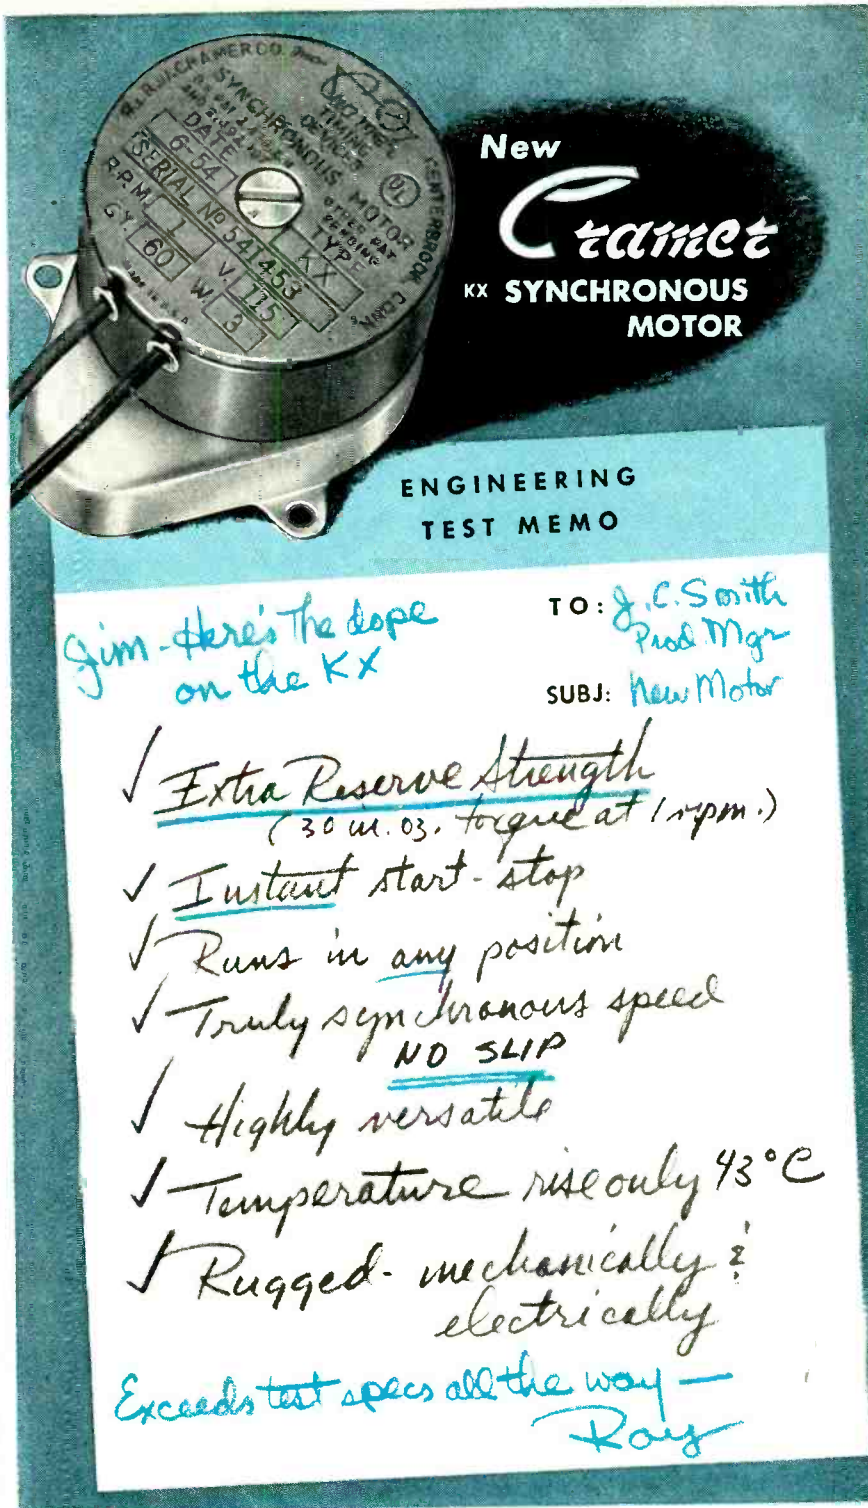 THE R.W. CRAMER CO. INC.
CENTERBROOK CONN.
TIMING
DEVICES
SYNCHRONOUS MOTOR
DATE
6-54
SERIAL Nº 541453
TYPE
KX
R.P.M. 1 V. 115
CY. 60 W. 3
MADE IN U.S.A.
UL
OTHER PAT.
PENDING
New
Cramer
KX SYNCHRONOUS
MOTOR
ENGINEERING
TEST MEMO
Jim - Here's the dope
on the KX
TO: J.C. Smith
Prod Mgr
SUBJ: New Motor
✓ Extra Reserve Strength
(30 in. oz. torque at 1 rpm.)
✓ Instant start-stop
✓ Runs in any position
✓ Truly synchronous speed
NO SLIP
✓ Highly versatile
✓ Temperature rise only 43°C
✓ Rugged - mechanically &
electrically
Exceeds test specs all the way —
Roy